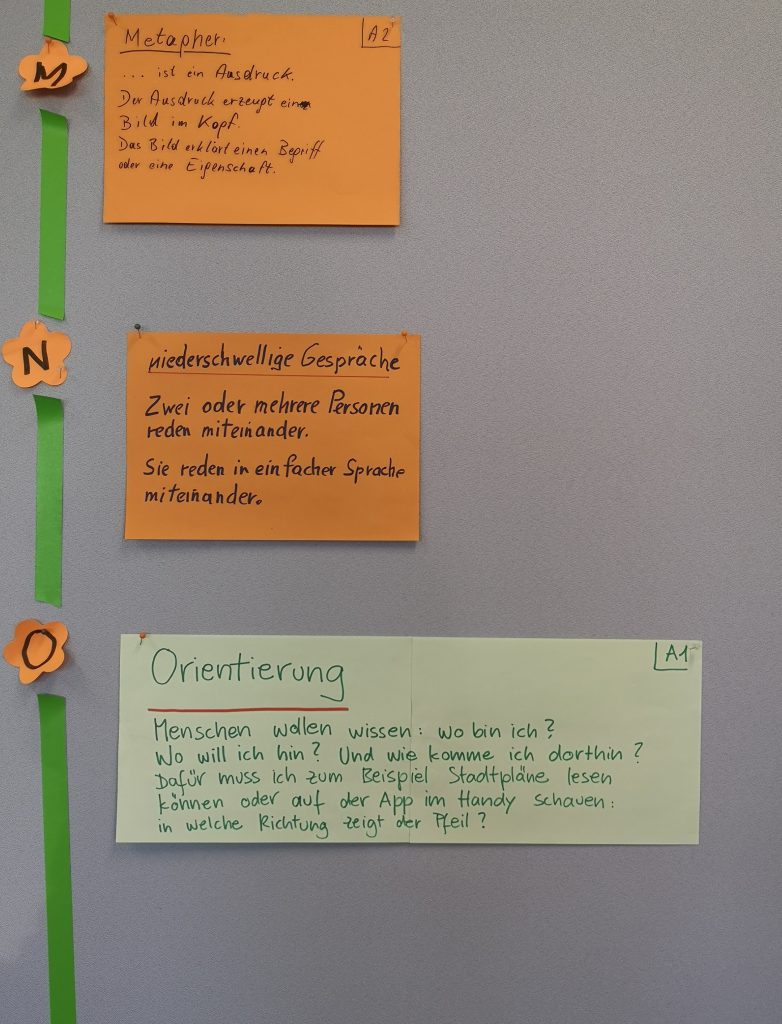 M
Metapher:
A2
... ist ein Ausdruck.
Der Ausdruck erzeugt ein
Bild im Kopf.
Das Bild erklärt einen Begriff
oder eine Eigenschaft.
N
niederschwellige Gespräche
Zwei oder mehrere Personen
reden miteinander.
Sie reden in einfacher Sprache
miteinander.
O
Orientierung
A1
Menschen wollen wissen: wo bin ich?
Wo will ich hin? Und wie komme ich dorthin?
Dafür muss ich zum Beispiel Stadtpläne lesen
können oder auf der App im Handy schauen:
in welche Richtung zeigt der Pfeil?